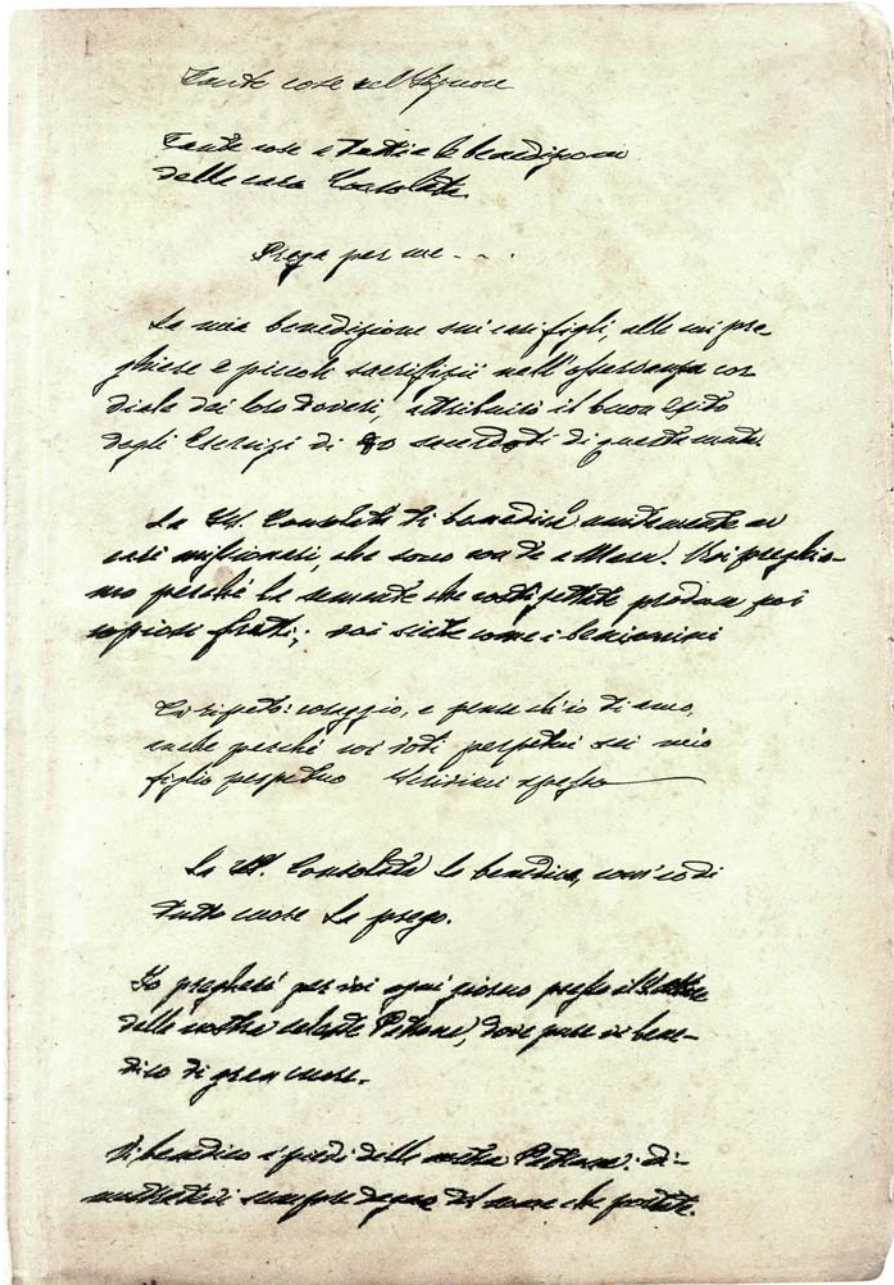 Tante cose nel Signore
Tante cose a tutti e le benedizioni
della cara Consolata.
Prega per me - - .
La mia benedizione sui cari figli, alle cui pre-
ghiere e piccoli sacrifizii nell'osservanza cor
diale dei loro doveri, attribuirò il buon esito
degli Esercizi di 90 sacerdoti di questa muta.
La SS. Consolata ti benedica unitamente ai
cari missionari, che sono con te a Meru. Noi preghia-
mo perché la semente che costì gettate produca poi
copiosi frutti; voi siete come i beniamini
Ti ripeto: coraggio, e pensa ch'io ti amo,
anche perché coi voti perpetui sei mio
figlio perpetuo Scrivimi spesso
La SS. Consolata La benedica, com'io di
tutto cuore La prego.
Io pregherò per voi ogni giorno presso il
della nostra celeste Patrona, dove pure vi bene-
dico di gran cuore.
Vi benedico ai piedi della nostra Patrona: di-
mostratevi sempre degni del nome che portate.